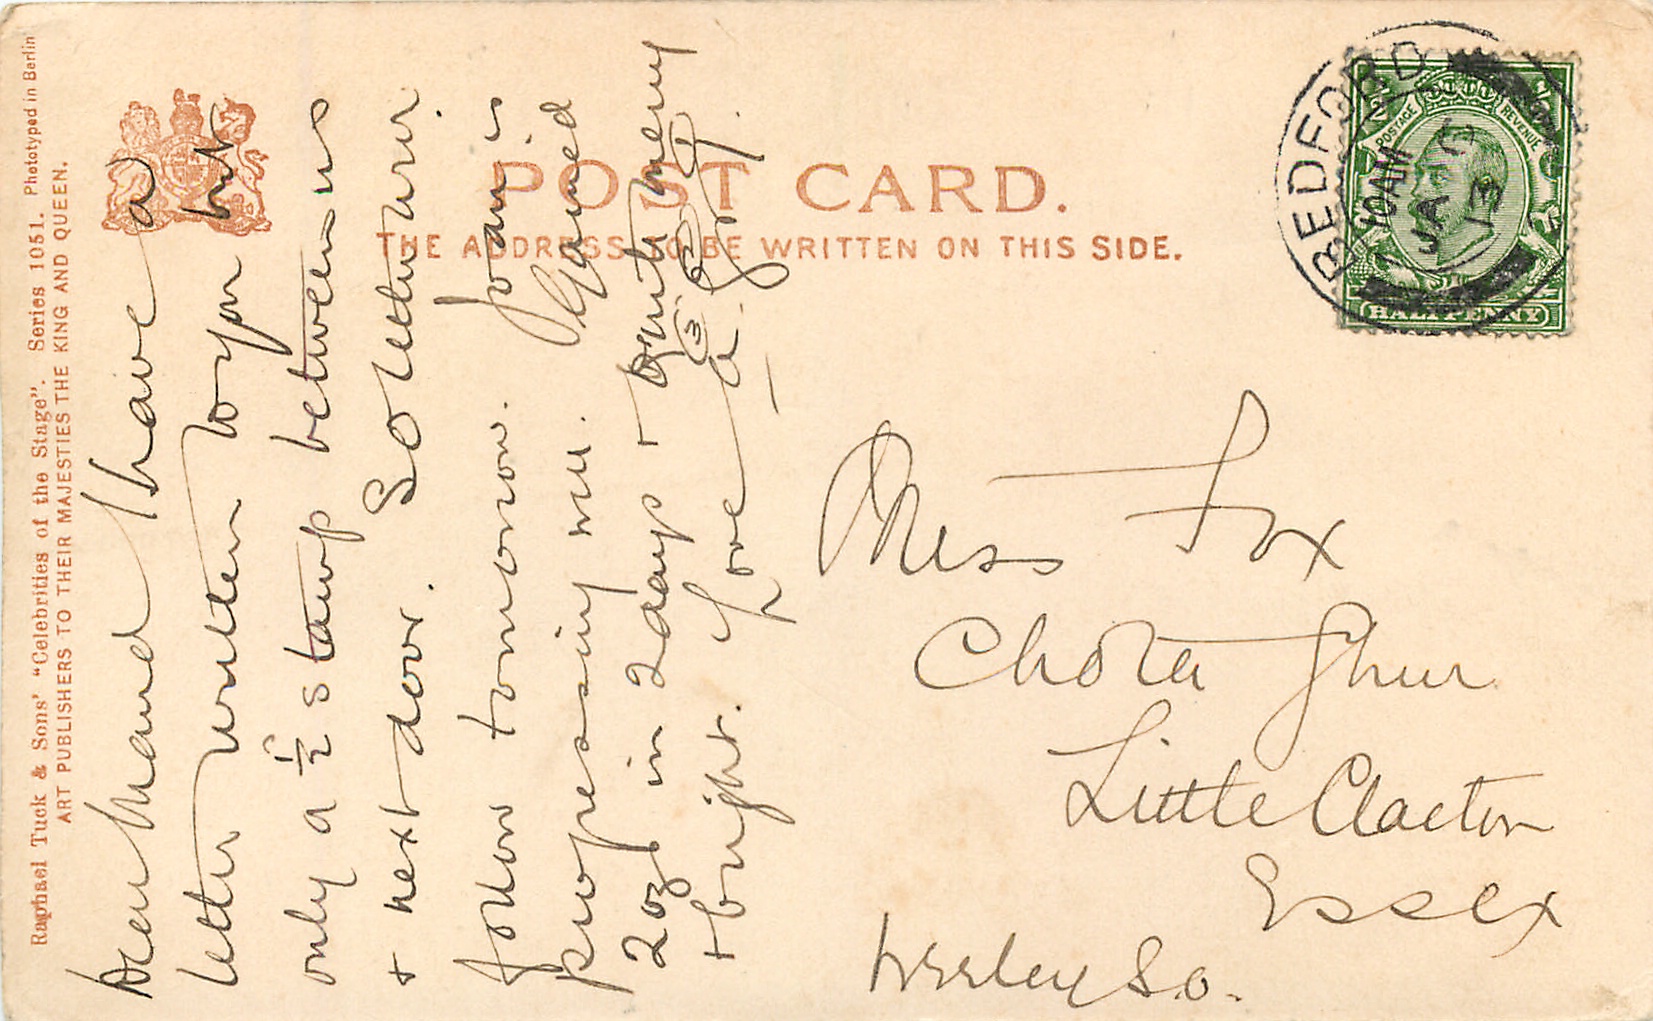 Raphael Tuck & Sons' "Celebrities of the Stage". Series 1051. Phototyped in Berlin
ART PUBLISHERS TO THEIR MAJESTIES THE KING AND QUEEN.
POST CARD.
THE ADDRESS TO BE WRITTEN ON THIS SIDE.
BEDFORD
10 AM
JA
13
POSTAGE
REVENUE
HALFPENNY
Dear Maud I have a
letter written to you but
only a ½ stamp between us
& next door. So letter will
follow tomorrow. Joan is
progressing well. Gained
2ozs in 2 days & quite merry
& bright. Love
Miss Fox
Chota Ghur
Little Clacton
Essex
Weeley S.O.